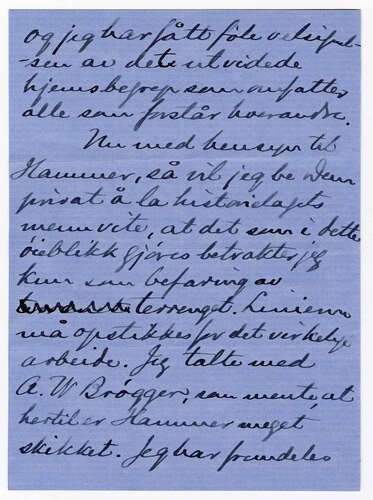 og jeg har fått føle velsignel-
-sen av dette utvidede
hjemsbegrep som omfatter
alle som forstår hverandre.
Nu med hensyn til
Hammer, så vil jeg be Dem
privat å la historielagets
menn vite, at det som i dette
öieblikk gjöres betrakter jeg
kun som befaring av
terrenget. Linjene
må opstikkes før det virkelige
arbeide. Jeg talte med
A. W Brøgger, som mente at
hertil er Hammer meget
skikket. Jeg har fremdeles